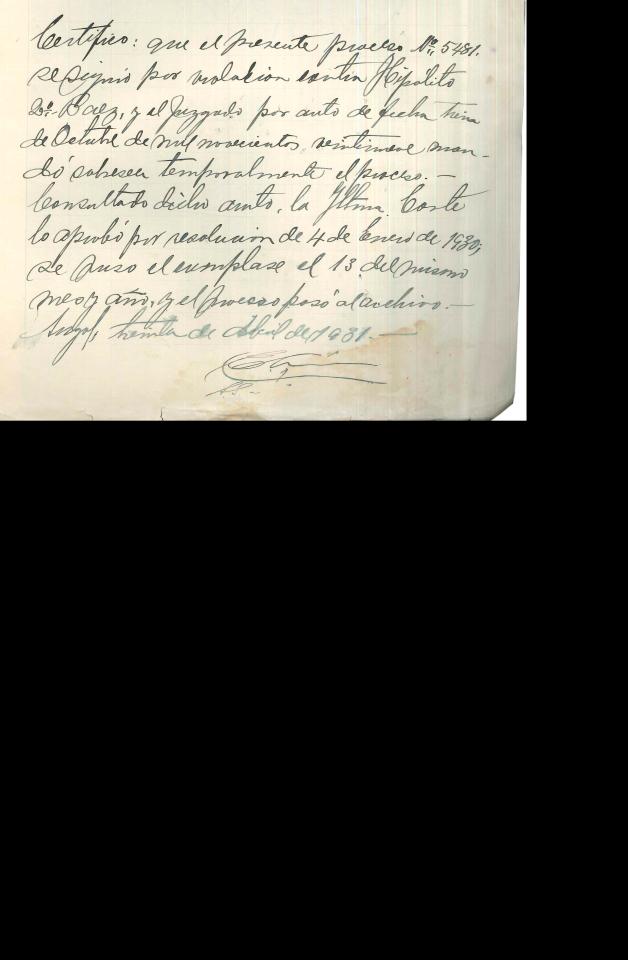 Certifico: que el presente proceso Nº 5481.
se siguió por violacion contra Hipólito
2º. Baez, y el Juzgado por auto de fecha
de Octubre de mil novecientos veintinueve man-
dó sobreseer temporalmente el proceso.-
Consultado dicho auto, la Iltma. Corte
lo aprobó por resolucion de 4 de Enero de 1930,
se puso el cumplase el 13 del mismo
mes y año, y el proceso pasó al archivo.-
Angol, treinta de Abril de 1931.-